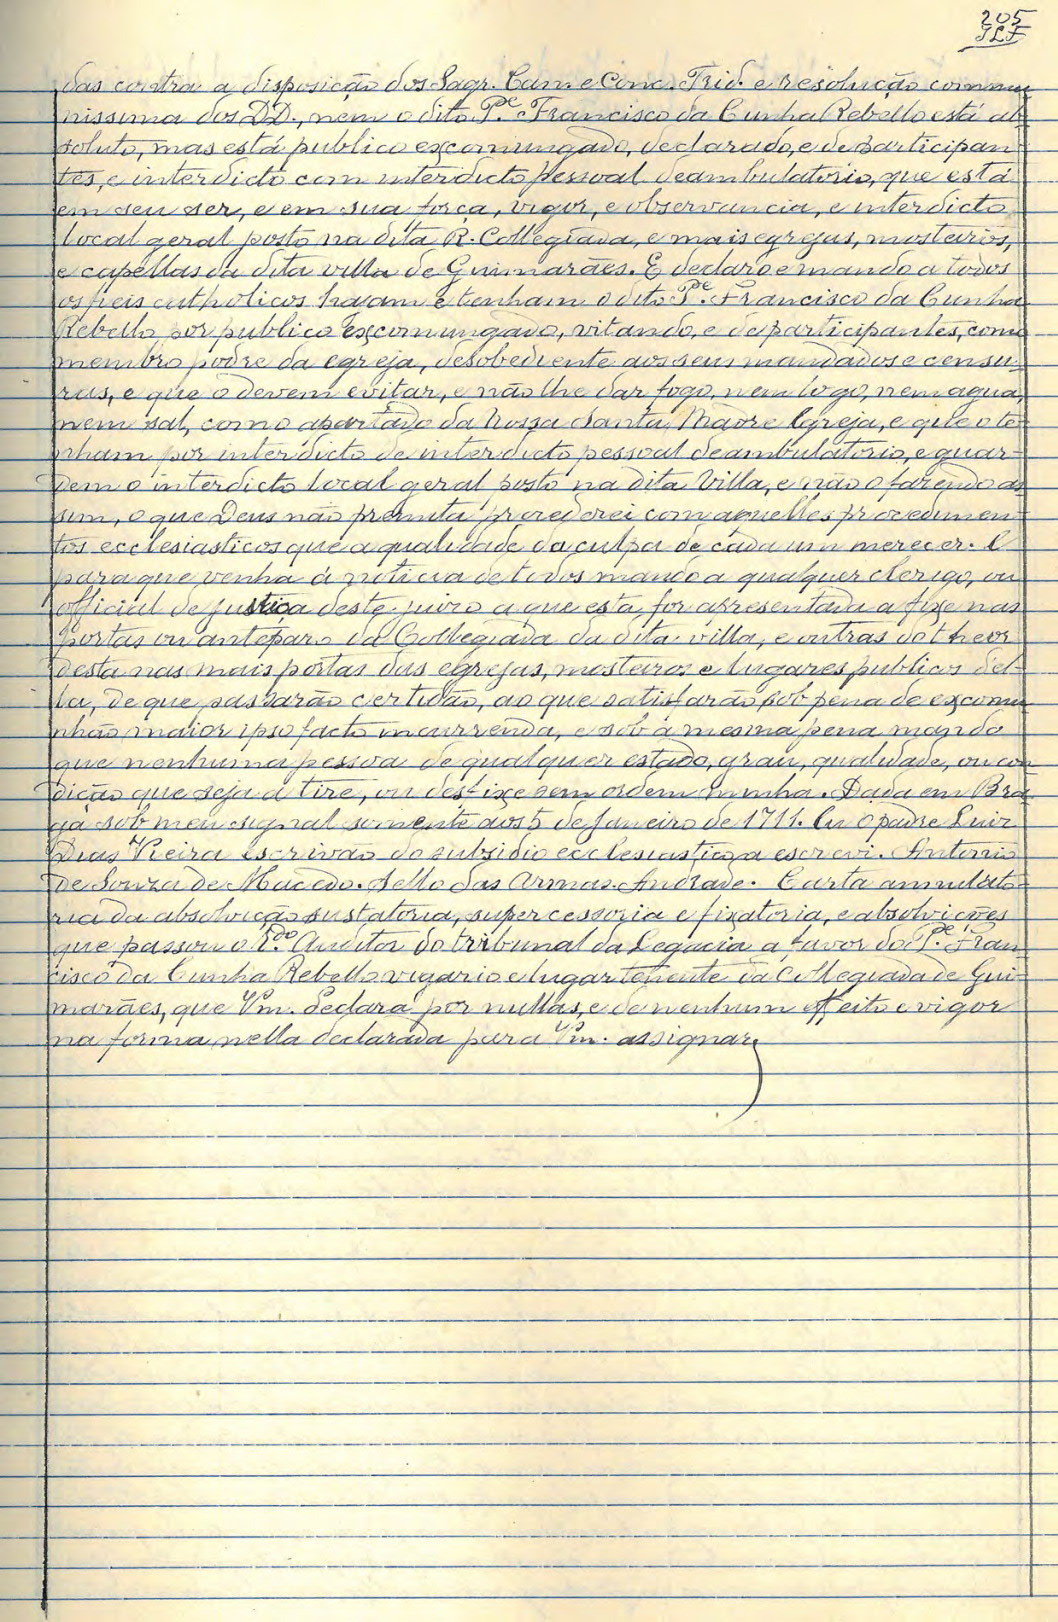 205
JLF
das contra a disposição dos Sagr. Can. e Conc. Trid. e resolução commu
nissima dos DD., nem o dito P.e Francisco da Cunha Rebello está ab
soluto, mas está publico excomungado, declarado, e de participan
tes, e interdicto com interdicto pessoal deambulatorio, que está
em seu ser, e em sua força, vigor, e observancia, e interdicto
local geral posto na dita R. Collegiada, e mais egrejas, mosteiros,
e capellas da dita villa de Guimarães. E declaro e mando a todos
os fieis catholicos hajam e tenham o dito P.e Francisco da Cunha
Rebello por publico excomungado, vitando, e de participantes, como
membro podre da egreja, desobediente aos seus mandados e censu
ras, e que o devem evitar, e não lhe dar fogo, nem logo, nem agua,
nem sal, como apartado da Nossa Santa Madre Igreja, e que o te
nham por interdicto de interdicto pessoal deambulatorio, e guar-
dem o interdicto local geral posto na dita Villa, e não o fazendo as
sim, o que Deus não premita procederei com aquelles procedimen
tos ecclesiasticos que a qualidade da culpa de cada um merecer. E
para que venha á noticia de todos mando a qualquer clerigo, ou
official de justiça deste juizo a que esta for apresentada a fixe nas
portas ou anteparo da Collegiada da dita villa, e outras do theor
desta nas mais portas das egrejas, mosteiros e lugares publicos del-
la, de que passarão certidão, ao que satisfarão sob pena de excomu
nhão maior ipso facto incurrenda, e sob a mesma pena mando
que nenhuma pessoa de qualquer estado, grau, qualidade, ou con
dição que seja a tire, ou desfixe sem ordem minha. Dada em Bra
ga sob meu signal somente aos 5 de Janeiro de 1711. Eu o padre Luiz
Dias Vieira escrivão do subsidio ecclesiastico a escrevi. Antonio
de Souza de Macedo. Sello das Armas. Andrade. Carta annulato
ria da absolvição sustatoria, supercessoria e fixatoria, e absolvições
que passou o R.do Auditor do tribunal da Legacia a favor do P.e Fran
cisco da Cunha Rebello vigario e lugartenente da Collegiada de Gui
marães, que Vm. declara por nullas, e de nenhum effeito e vigor
na forma nella declarada para Vm. assignar.